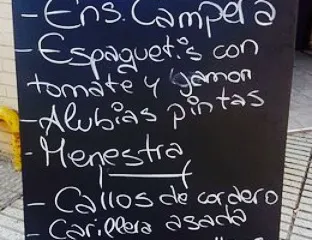 - Ens. Campera
- Espaguetis con
tomate y jamon
- Alubias pintas
- Menestra
- Callos de cordero
- Carillera asada